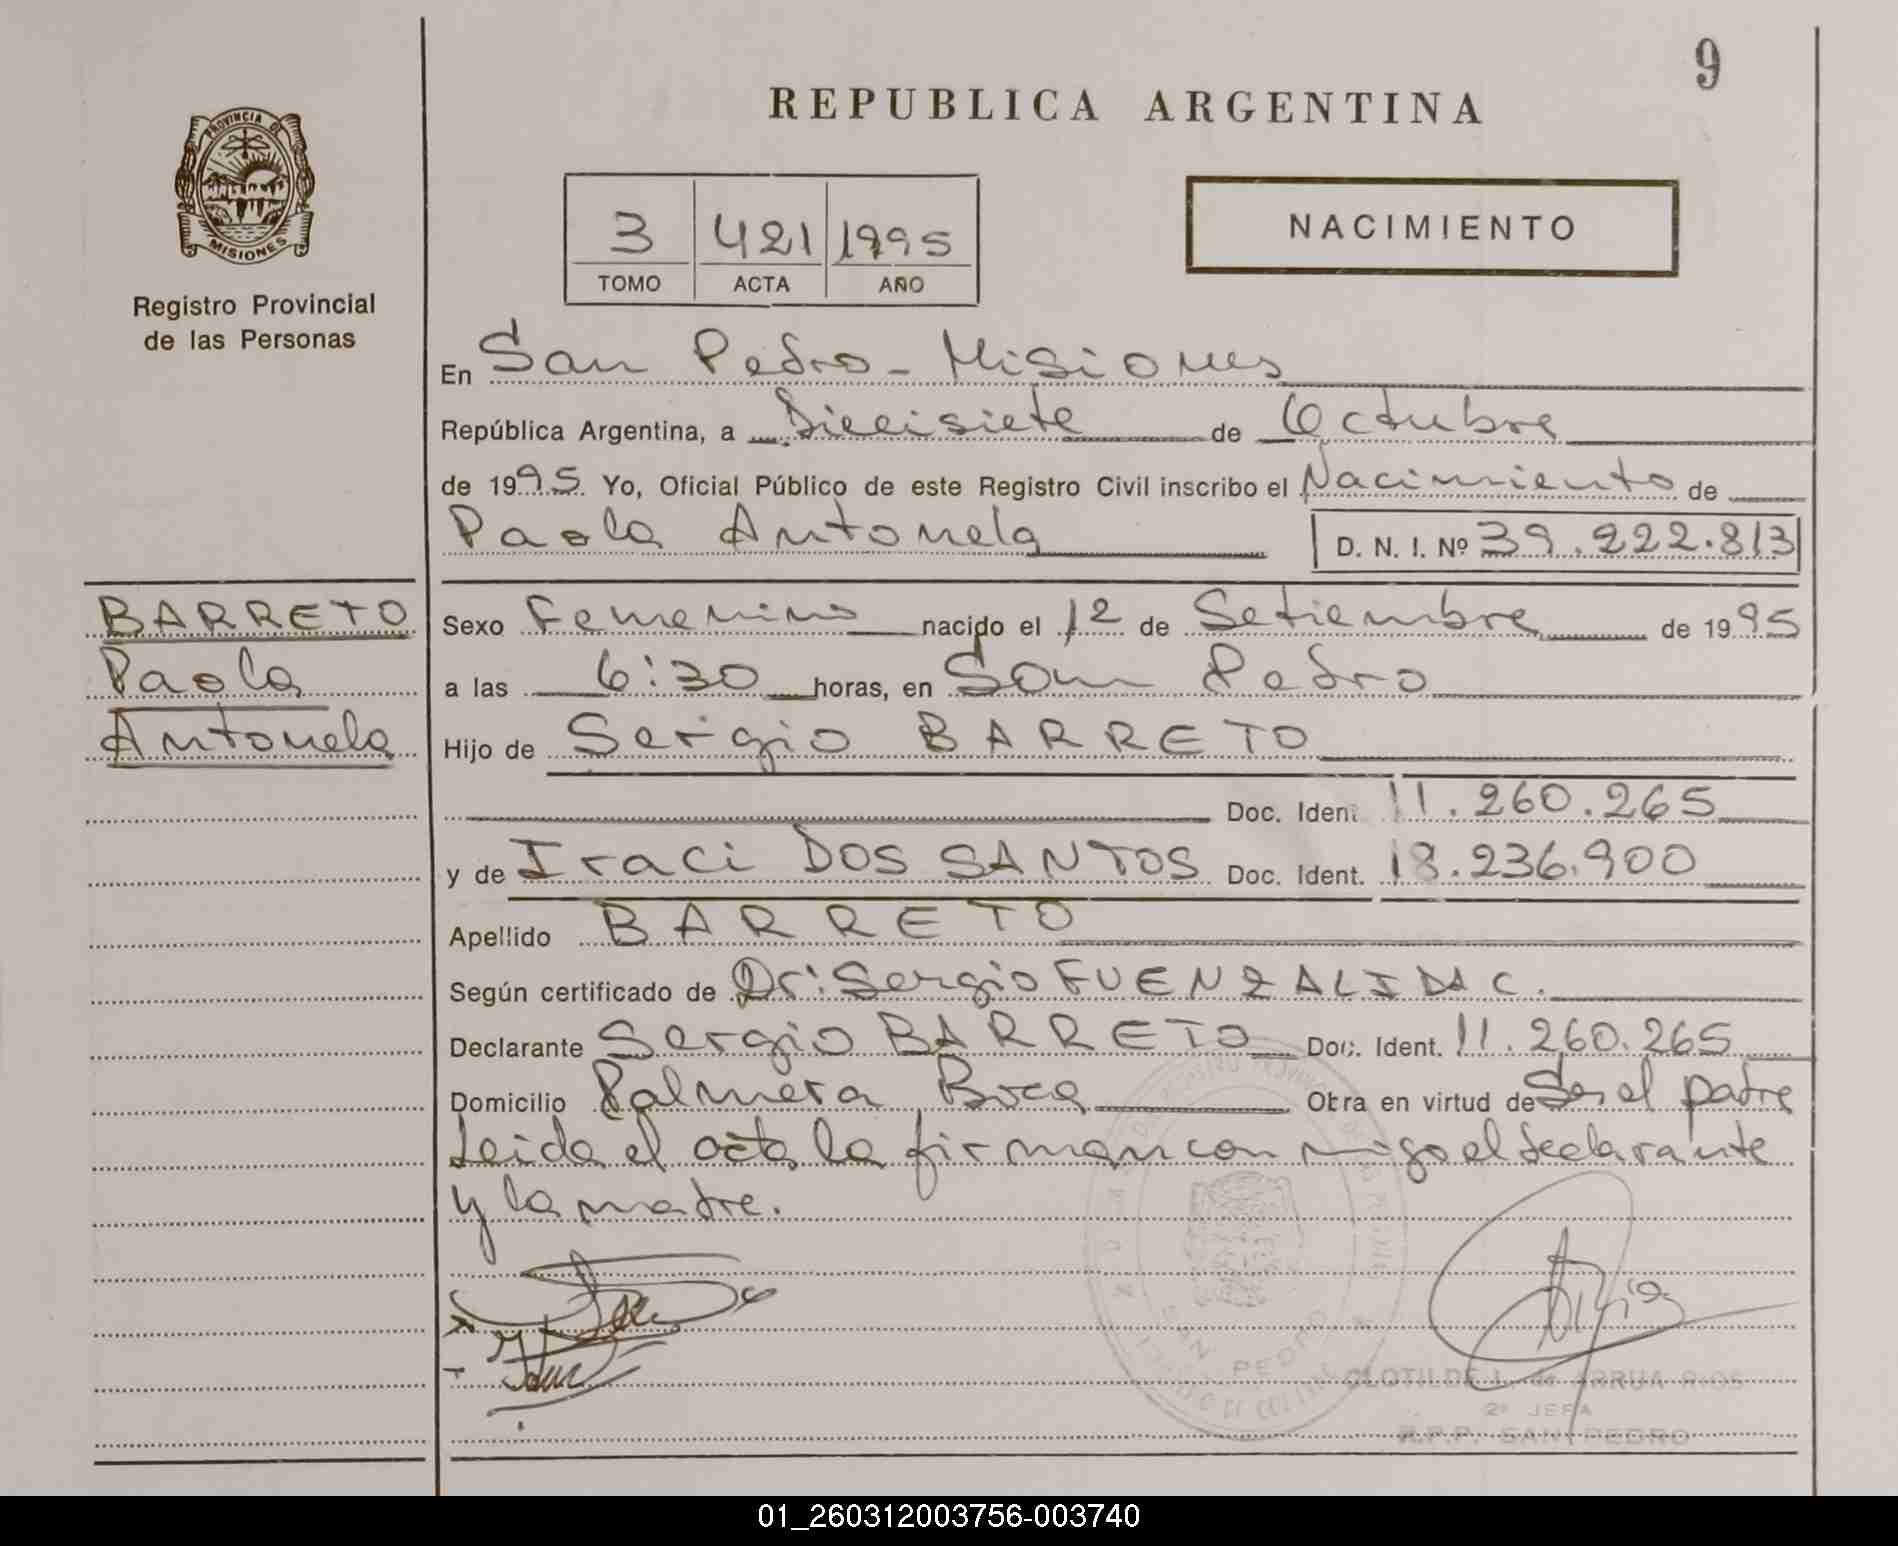 9
REPUBLICA ARGENTINA
PROVINCIA DE
MISIONES
Registro Provincial
de las Personas
3 421 1995
TOMO ACTA AÑO
NACIMIENTO
En San Pedro - Misiones
República Argentina, a Diecisiete de Octubre
de 1995 Yo, Oficial Público de este Registro Civil inscribo el Nacimiento de
Paola Antonela D. N. I. Nº 39.222.813
BARRETO
Paola
Antonela
Sexo Femenino nacido el 12 de Setiembre de 1995
a las 6:30 horas, en San Pedro
Hijo de Sergio BARRETO
Doc. Ident. 11.260.265
y de Iraci DOS SANTOS Doc. Ident. 18.236.900
Apellido BARRETO
Según certificado de Dr: Sergio FUENZALIDA C.
Declarante Sergio BARRETO Doc. Ident. 11.260.265
Domicilio Palmera Boca Obra en virtud de Ser el padre
Leida el acta la firman con migo el declarante
y la madre.
SAN PEDRO
CLOTILDE L. de ARRUA RIOS
2º JEFA
R.P.P. SAN PEDRO
01_260312003756-003740